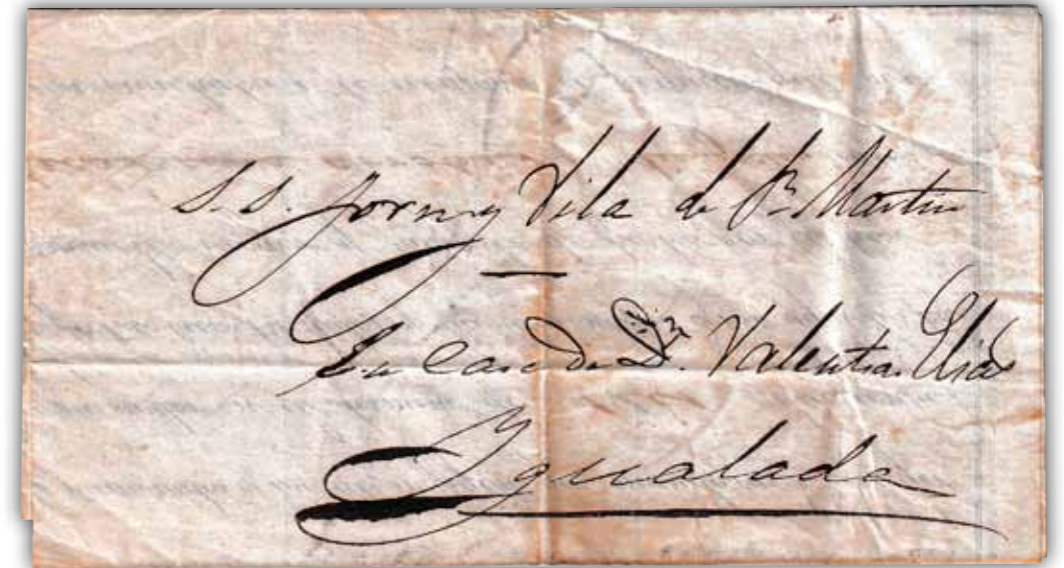 S.S. Forn y Vila de Sn Martin
En Casa de Dn. Valentin Elias
Ygualada